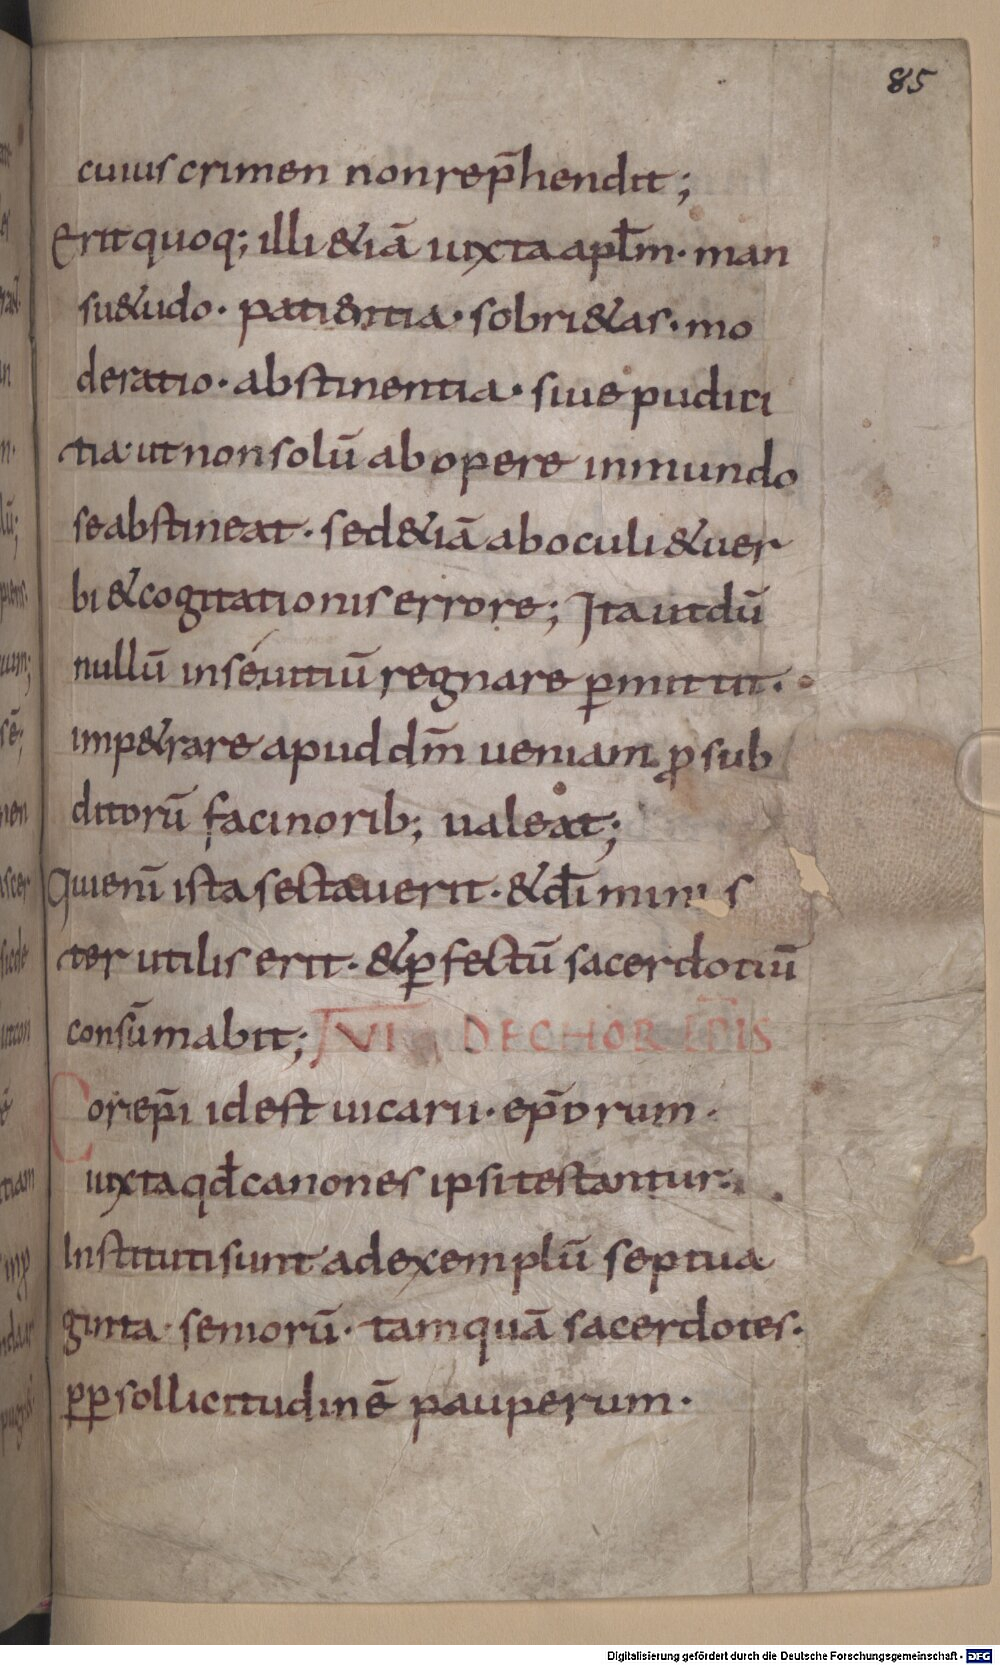 85
cuius crimen non rep̄hendit;
Erit quoq; illi &iā iuxta apłm· man
su&udo· patientia· sobri&as· mo
deratio· abstinentia· siue pudici
tia· ut non solū ab opere inmundo
se abstineat· sed &iā ab oculi & uer
bi & cogitationis errore; Ita ut dū
nullū in sé uitiū regnare ꝑmittit·
imp&rare apud dm̄ ueniam ꝓ sub
ditorū facinorib; ualeat;
Qui eni̅ ista sectauerit· & dī minis
ter utilis erit· & ꝑfectū sacerdotiū
consūmabit; XVI DE CHOREPIS
Corep̄i id est uicarii· ep̄orum·
iuxta qđ canones ipsi testantur·
Instituti sunt ad exemplū septua
ginta· seniorū· tamquā sacerdotes·
ꝑꝑ sollicitudinē pauperum·
Digitalisierung gefördert durch die Deutsche Forschungsgemeinschaft - DFG